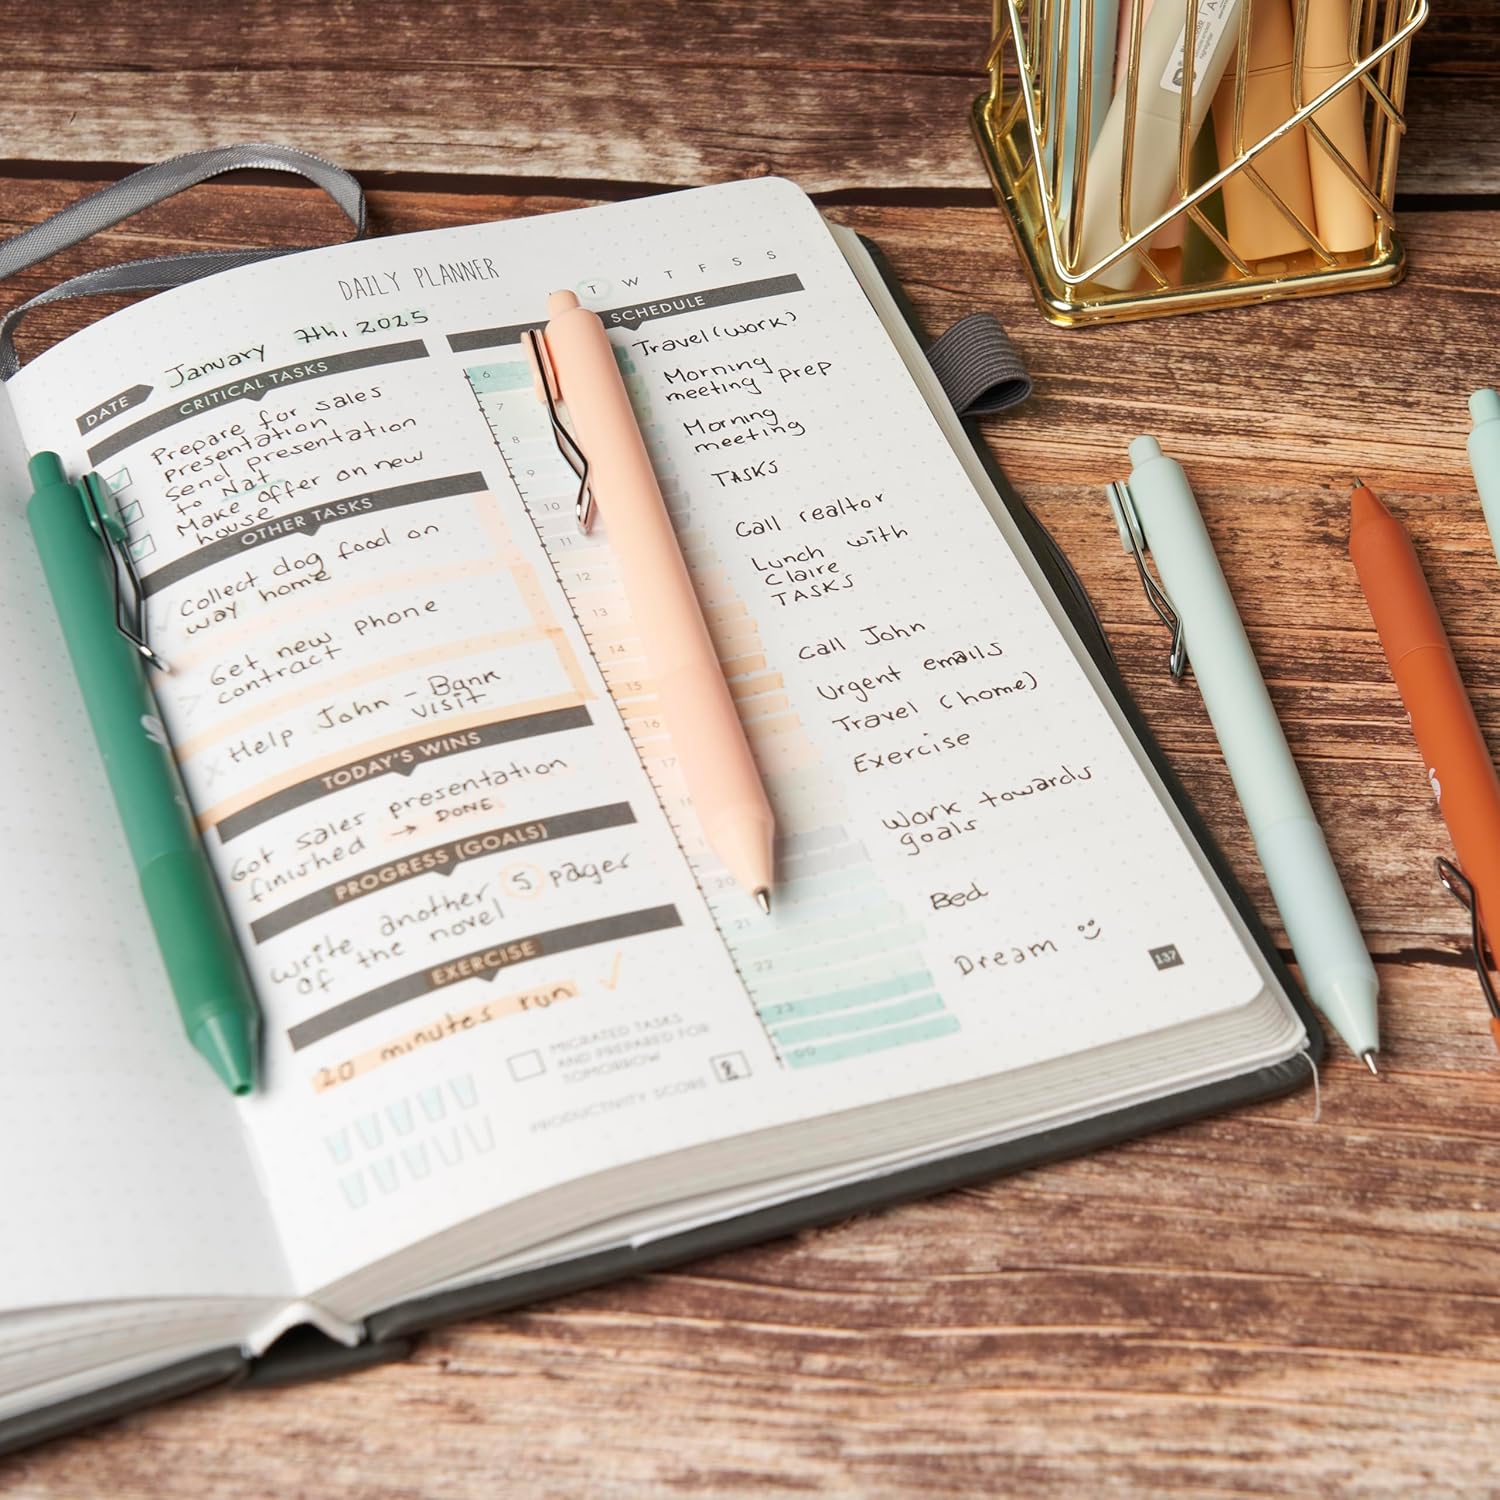 DAILY PLANNER
T W T F S S
DATE January 7th, 2025
CRITICAL TASKS
Prepare for sales
presentation
Send presentation
to Nat
Make offer on new
house
OTHER TASKS
Collect dog food on
way home
Get new phone
contract
Help John - Bank
visit
TODAY'S WINS
Got sales presentation
finished → DONE
PROGRESS (GOALS)
write another 5 pages
of the novel
EXERCISE
20 minutes run
MIGRATED TASKS
AND PREPARED FOR
TOMORROW
PRODUCTIVITY SCORE
SCHEDULE
6
7
8
9
10
11
12
13
14
15
16
17
20
21
22
23
00
Travel (work)
Morning
meeting prep
Morning
meeting
TASKS
Call realtor
Lunch with
Claire
TASKS
Call John
Urgent emails
Travel (home)
Exercise
Work towards
goals
Bed
Dream
137